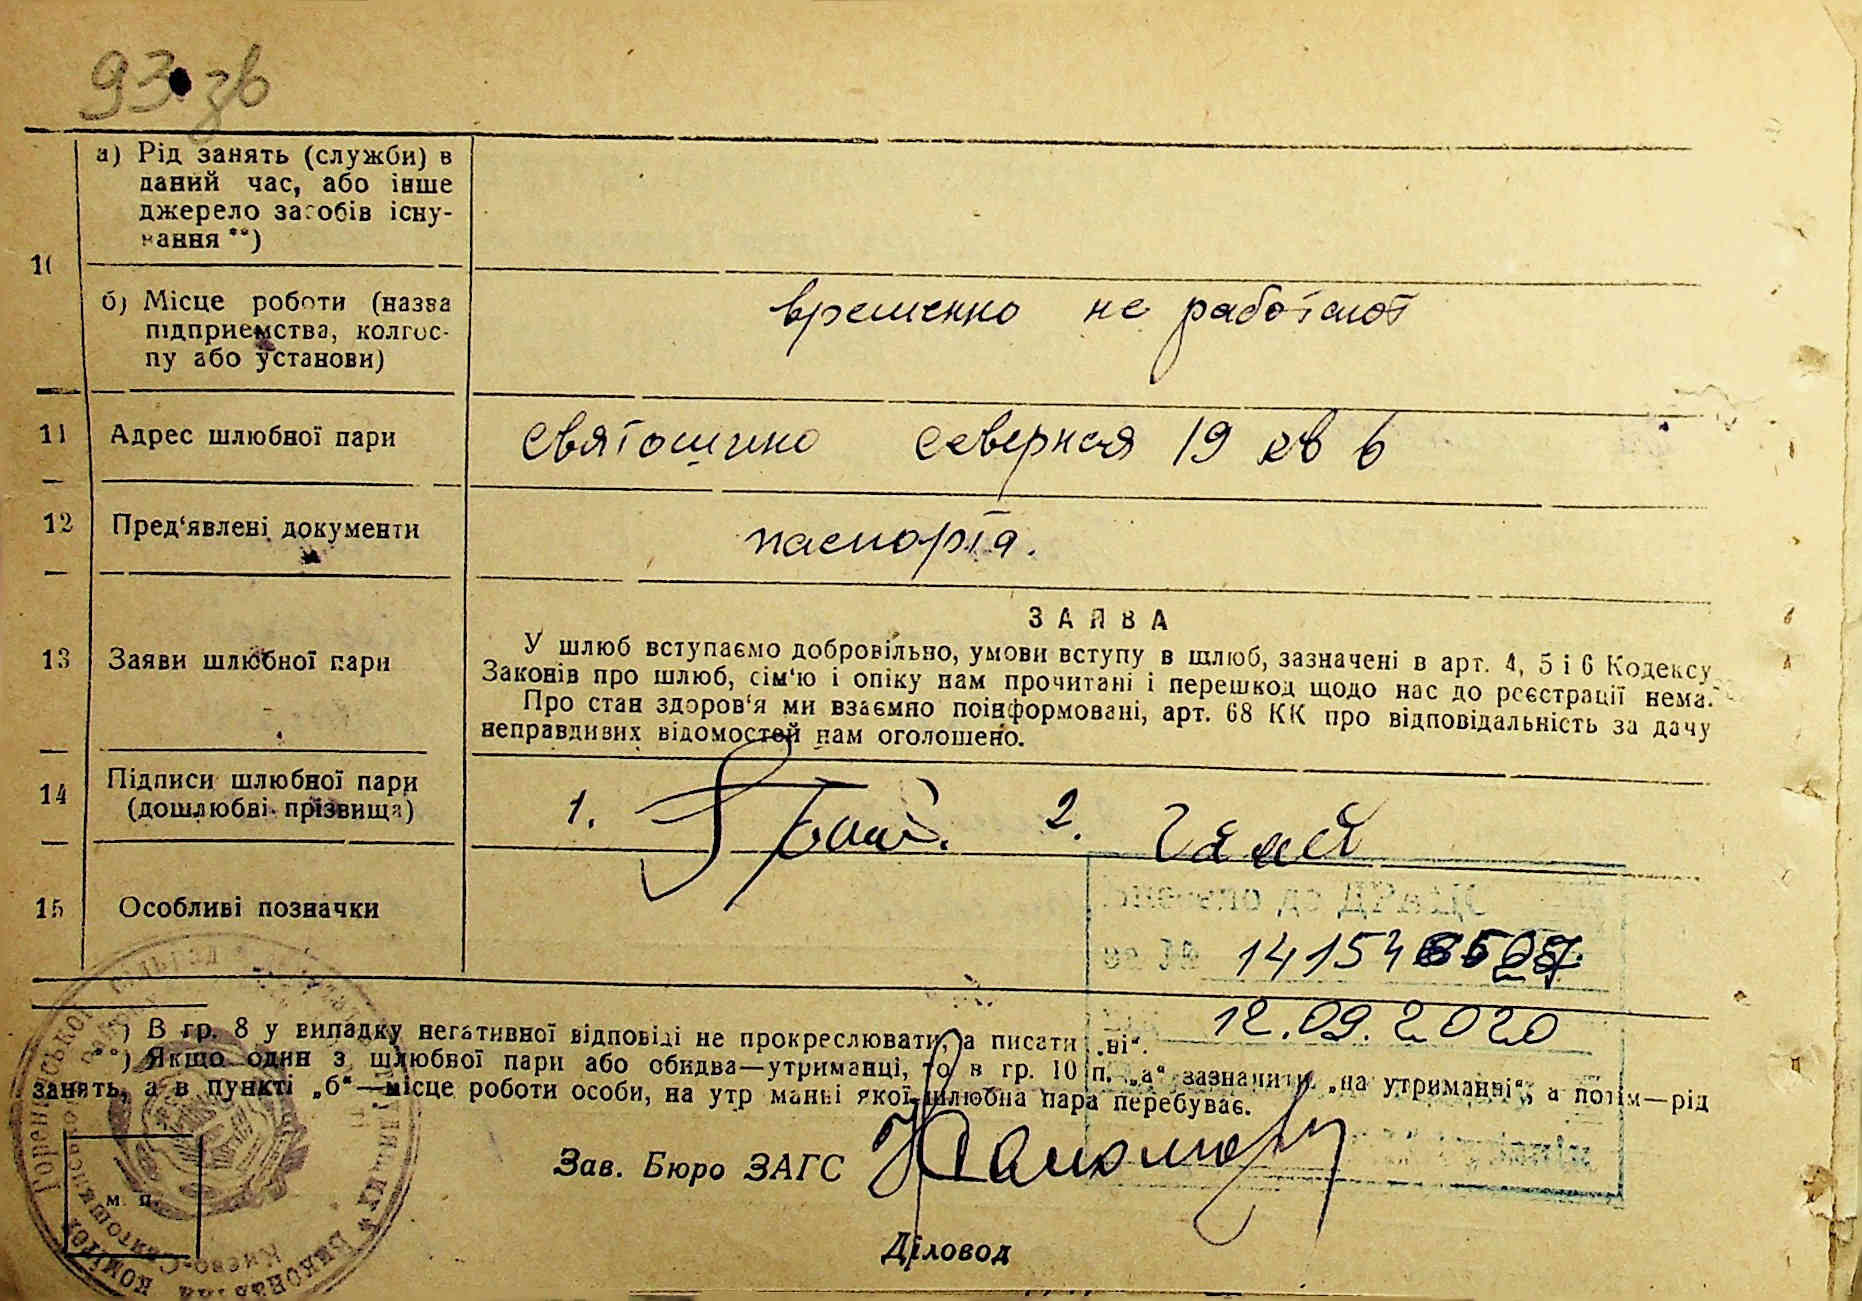 93 зв
а) Рід занять (служби) в
даний час, або інше
джерело засобів існу-
вання **)
10
б) Місце роботи (назва
підприємства, колгос-
пу або установи)
временно не работают
11 Адрес шлюбної пари Святошино Северная 19 кв 6
12 Пред'явлені документи паспорта.
ЗАЯВА
13 Заяви шлюбної пари
У шлюб вступаємо добровільно, умови вступу в шлюб, зазначені в арт. 4, 5 і 6 Кодексу
Законів про шлюб, сім'ю і опіку нам прочитані і перешкод щодо нас до реєстрації нема.
Про стан здоров'я ми взаємно поінформовані, арт. 68 КК про відповідальність за дачу
неправдивих відомостей нам оголошено.
14 Підписи шлюбної пари
(дошлюбні прізвища)
1. 2.
15 Особливі позначки
12.09.2020
*) В гр. 8 у випадку негативної відповіді не прокреслювати, а писати „ні“.
**) Якщо один з шлюбної пари або обидва—утриманці, то в гр. 10 п. „а“ зазначити „на утриманні“, а потім—рід
занять, а в пункті „б“—місце роботи особи, на утр манні якої шлюбна пара перебуває.
Зав. Бюро ЗАГС
м. п.
Діловод